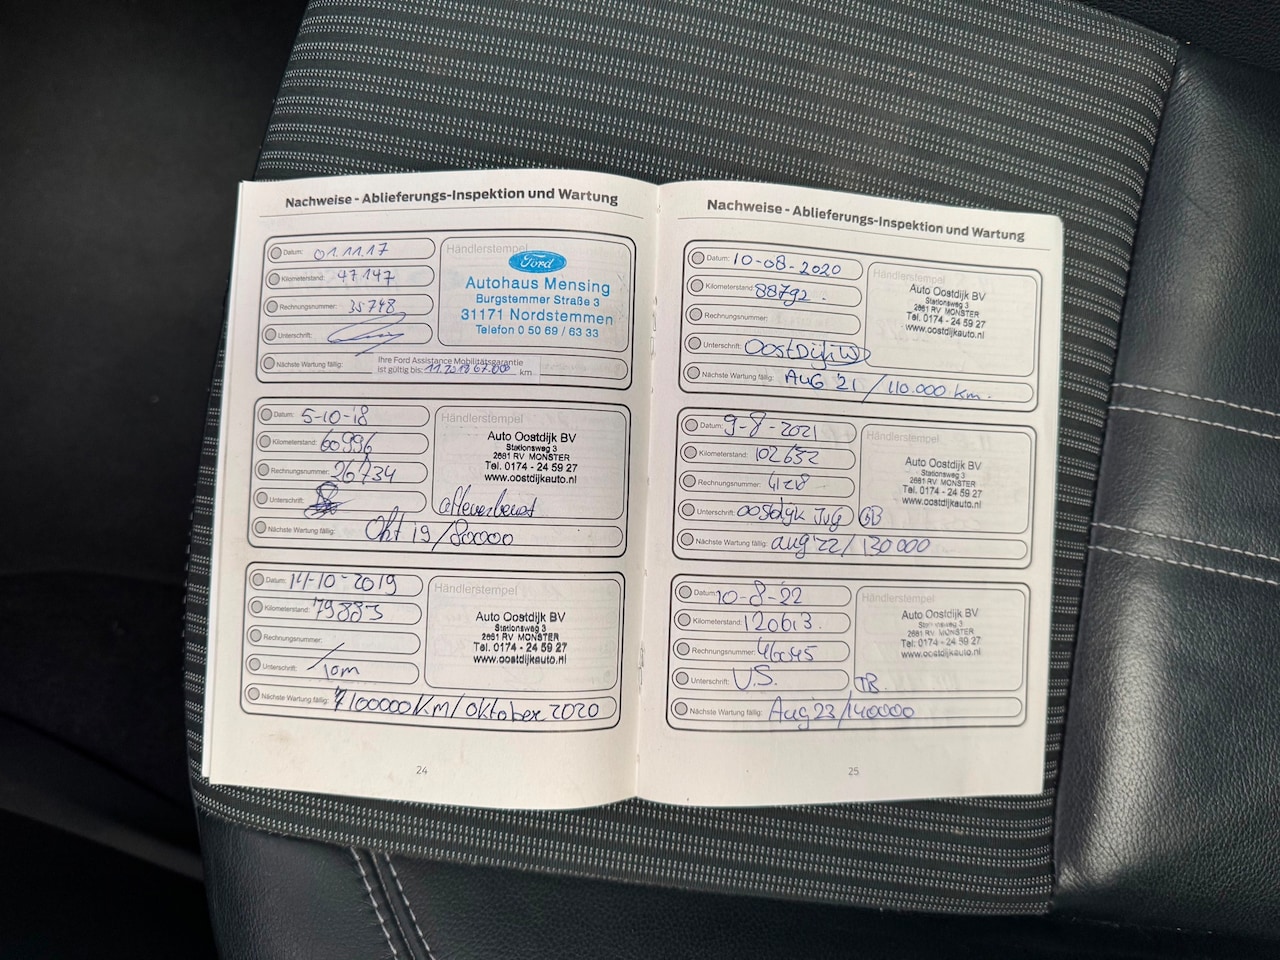 Nachweise - Ablieferungs-Inspektion und Wartung
Datum: 01.11.17
Kilometerstand: 47147
Rechnungsnummer: 35748
Unterschrift:
Nächste Wartung fällig: Ihre Ford Assistance Mobilitätsgarantie
ist gültig bis: 11.2018 67.000 km
Händlerstempel
Ford
Autohaus Mensing
Burgstemmer Straße 3
31171 Nordstemmen
Telefon 0 50 69 / 63 33
Datum: 5-10-'18
Kilometerstand: 60996
Rechnungsnummer: 26734
Unterschrift:
Nächste Wartung fällig: Okt 19/80000
Händlerstempel
Auto Oostdijk BV
Stationsweg 3
2681 RV MONSTER
Tel. 0174 - 24 59 27
www.oostdijkauto.nl
afleverbeurt
Datum: 14-10-2019
Kilometerstand: 79883
Rechnungsnummer:
Unterschrift: Tom
Nächste Wartung fällig: 100000KM/oktober 2020
Händlerstempel
Auto Oostdijk BV
Stationsweg 3
2681 RV MONSTER
Tel. 0174 - 24 59 27
www.oostdijkauto.nl
24
Nachweise - Ablieferungs-Inspektion und Wartung
Datum: 10-08-2020
Kilometerstand: 88792.
Rechnungsnummer:
Unterschrift: Oostdijk
Nächste Wartung fällig: Aug '21 / 110.000 km.
Händlerstempel
Auto Oostdijk BV
Stationsweg 3
2681 RV MONSTER
Tel. 0174 - 24 59 27
www.oostdijkauto.nl
Datum: 9-8-2021
Kilometerstand: 102652
Rechnungsnummer: 4128
Unterschrift: oostdijk
Nächste Wartung fällig: aug '22/ 130000
Händlerstempel
Auto Oostdijk BV
Stationsweg 3
2681 RV MONSTER
Tel. 0174 - 24 59 27
www.oostdijkauto.nl
Datum: 10-8-'22
Kilometerstand: 120613.
Rechnungsnummer: 46045
Unterschrift: V.S.
TB.
Nächste Wartung fällig: Aug 23/140000
Händlerstempel
Auto Oostdijk BV
Stationsweg 3
2681 RV MONSTER
Tel. 0174 - 24 59 27
www.oostdijkauto.nl
25